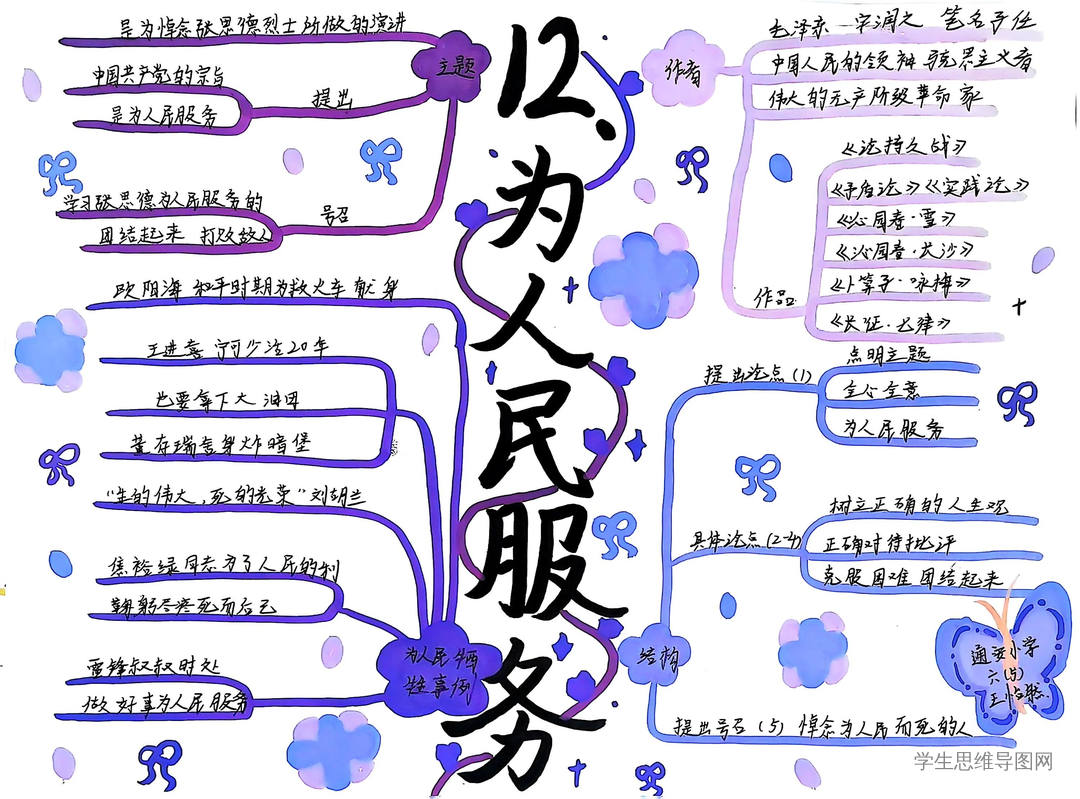 12.为人民服务
主题
是为悼念张思德烈士所做的演讲
提出
中国共产党的宗旨
是为人民服务
号召
学习张思德为人民服务的
团结起来 打败敌人
作者
毛泽东 字润之 笔名子任
中国人民的领袖 马克思主义者
伟大的无产阶级革命家
作品
《论持久战》
《矛盾论》《实践论》
《沁园春·雪》
《沁园春·长沙》
《卜算子·咏梅》
《长征·七律》
为人民牺
牲事例
欧阳海 和平时期为救火车献身
王进喜 宁可少活20年
也要拿下大油田
董存瑞舍身炸暗堡
“生的伟大,死的光荣”刘胡兰
焦裕禄同志为了人民的利
鞠躬尽瘁死而后已
雷锋叔叔时处
做好事为人民服务
结构
提出论点(1)
点明主题
全心全意
为人民服务
具体论点(2-4)
树立正确的人生观
正确对待批评
克服困难 团结起来
提出号召(5) 悼念为人民而死的人
通安小学
六(5)
学生思维导图网